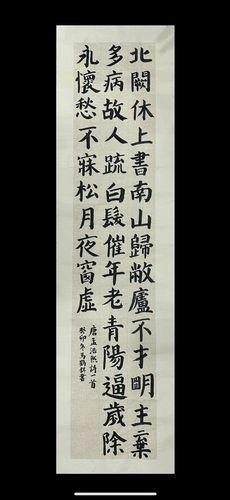 北闕休上書南山歸敝廬不才明主棄
多病故人疏白髮催年老青陽逼歲除
永懷愁不寐松月夜窗虛
唐孟浩然詩一首
癸卯冬馬鶴林書